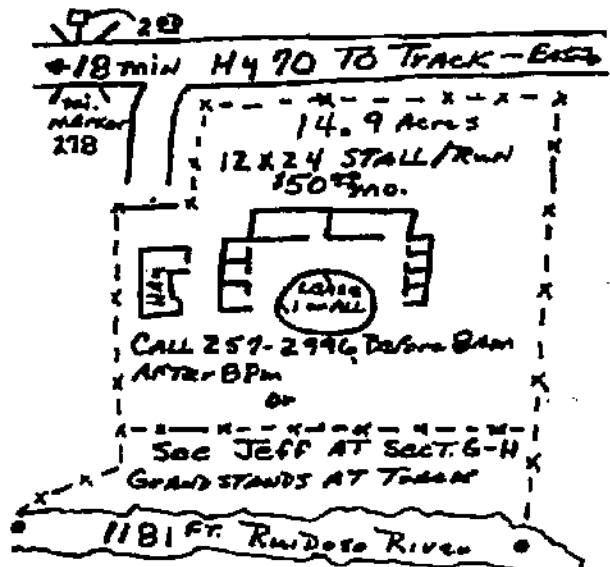 18 min Hy 70 TO TRACK - EAST
mi. marker 278
14.9 Acres
12 X 24 STALL/RUN
$50 00 mo.
Hay
Lease 1 or ALL
CALL 257-2996, Before 8 Am
AFTER 8 Pm
or
See Jeff AT SECT. G-H
GRANDSTANDS AT TRACK
1181 FT. Ruidoso River